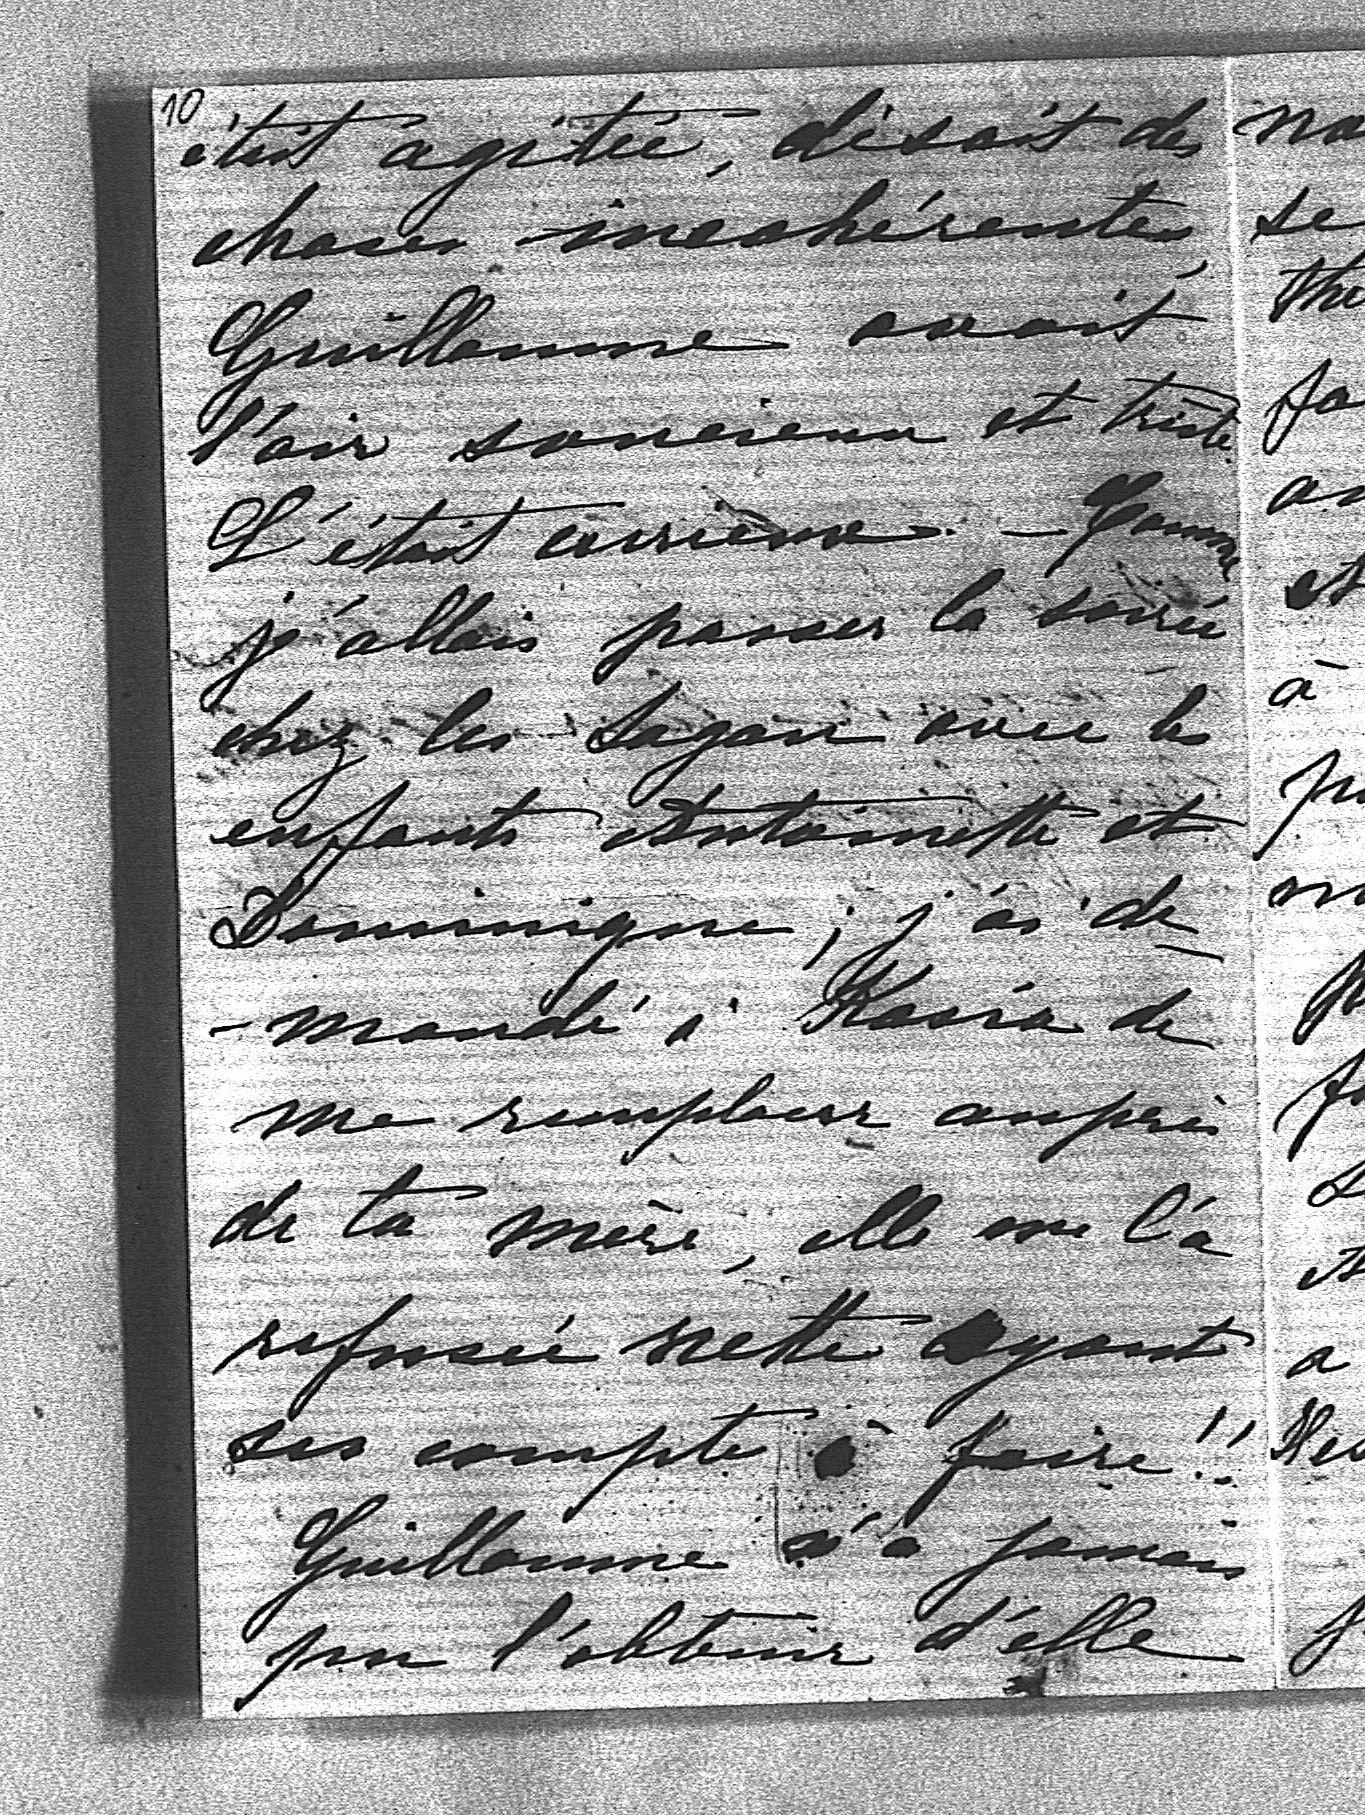 10
était agitée, disait des
choses incohérentes
Guillaume avait
l'air soucieux et triste.
C'était curieux. – Comme
j'allais passer la soirée
chez les Sagan avec les
enfants Antoinette et
Dominique, j'ai de
-mandé à Kasia de
me remplacer auprès
de ta mère, elle me l'a
refusée nette ayant
ses compte à faire!!
Guillaume n'a jamais
pu l'obtenir d'elle